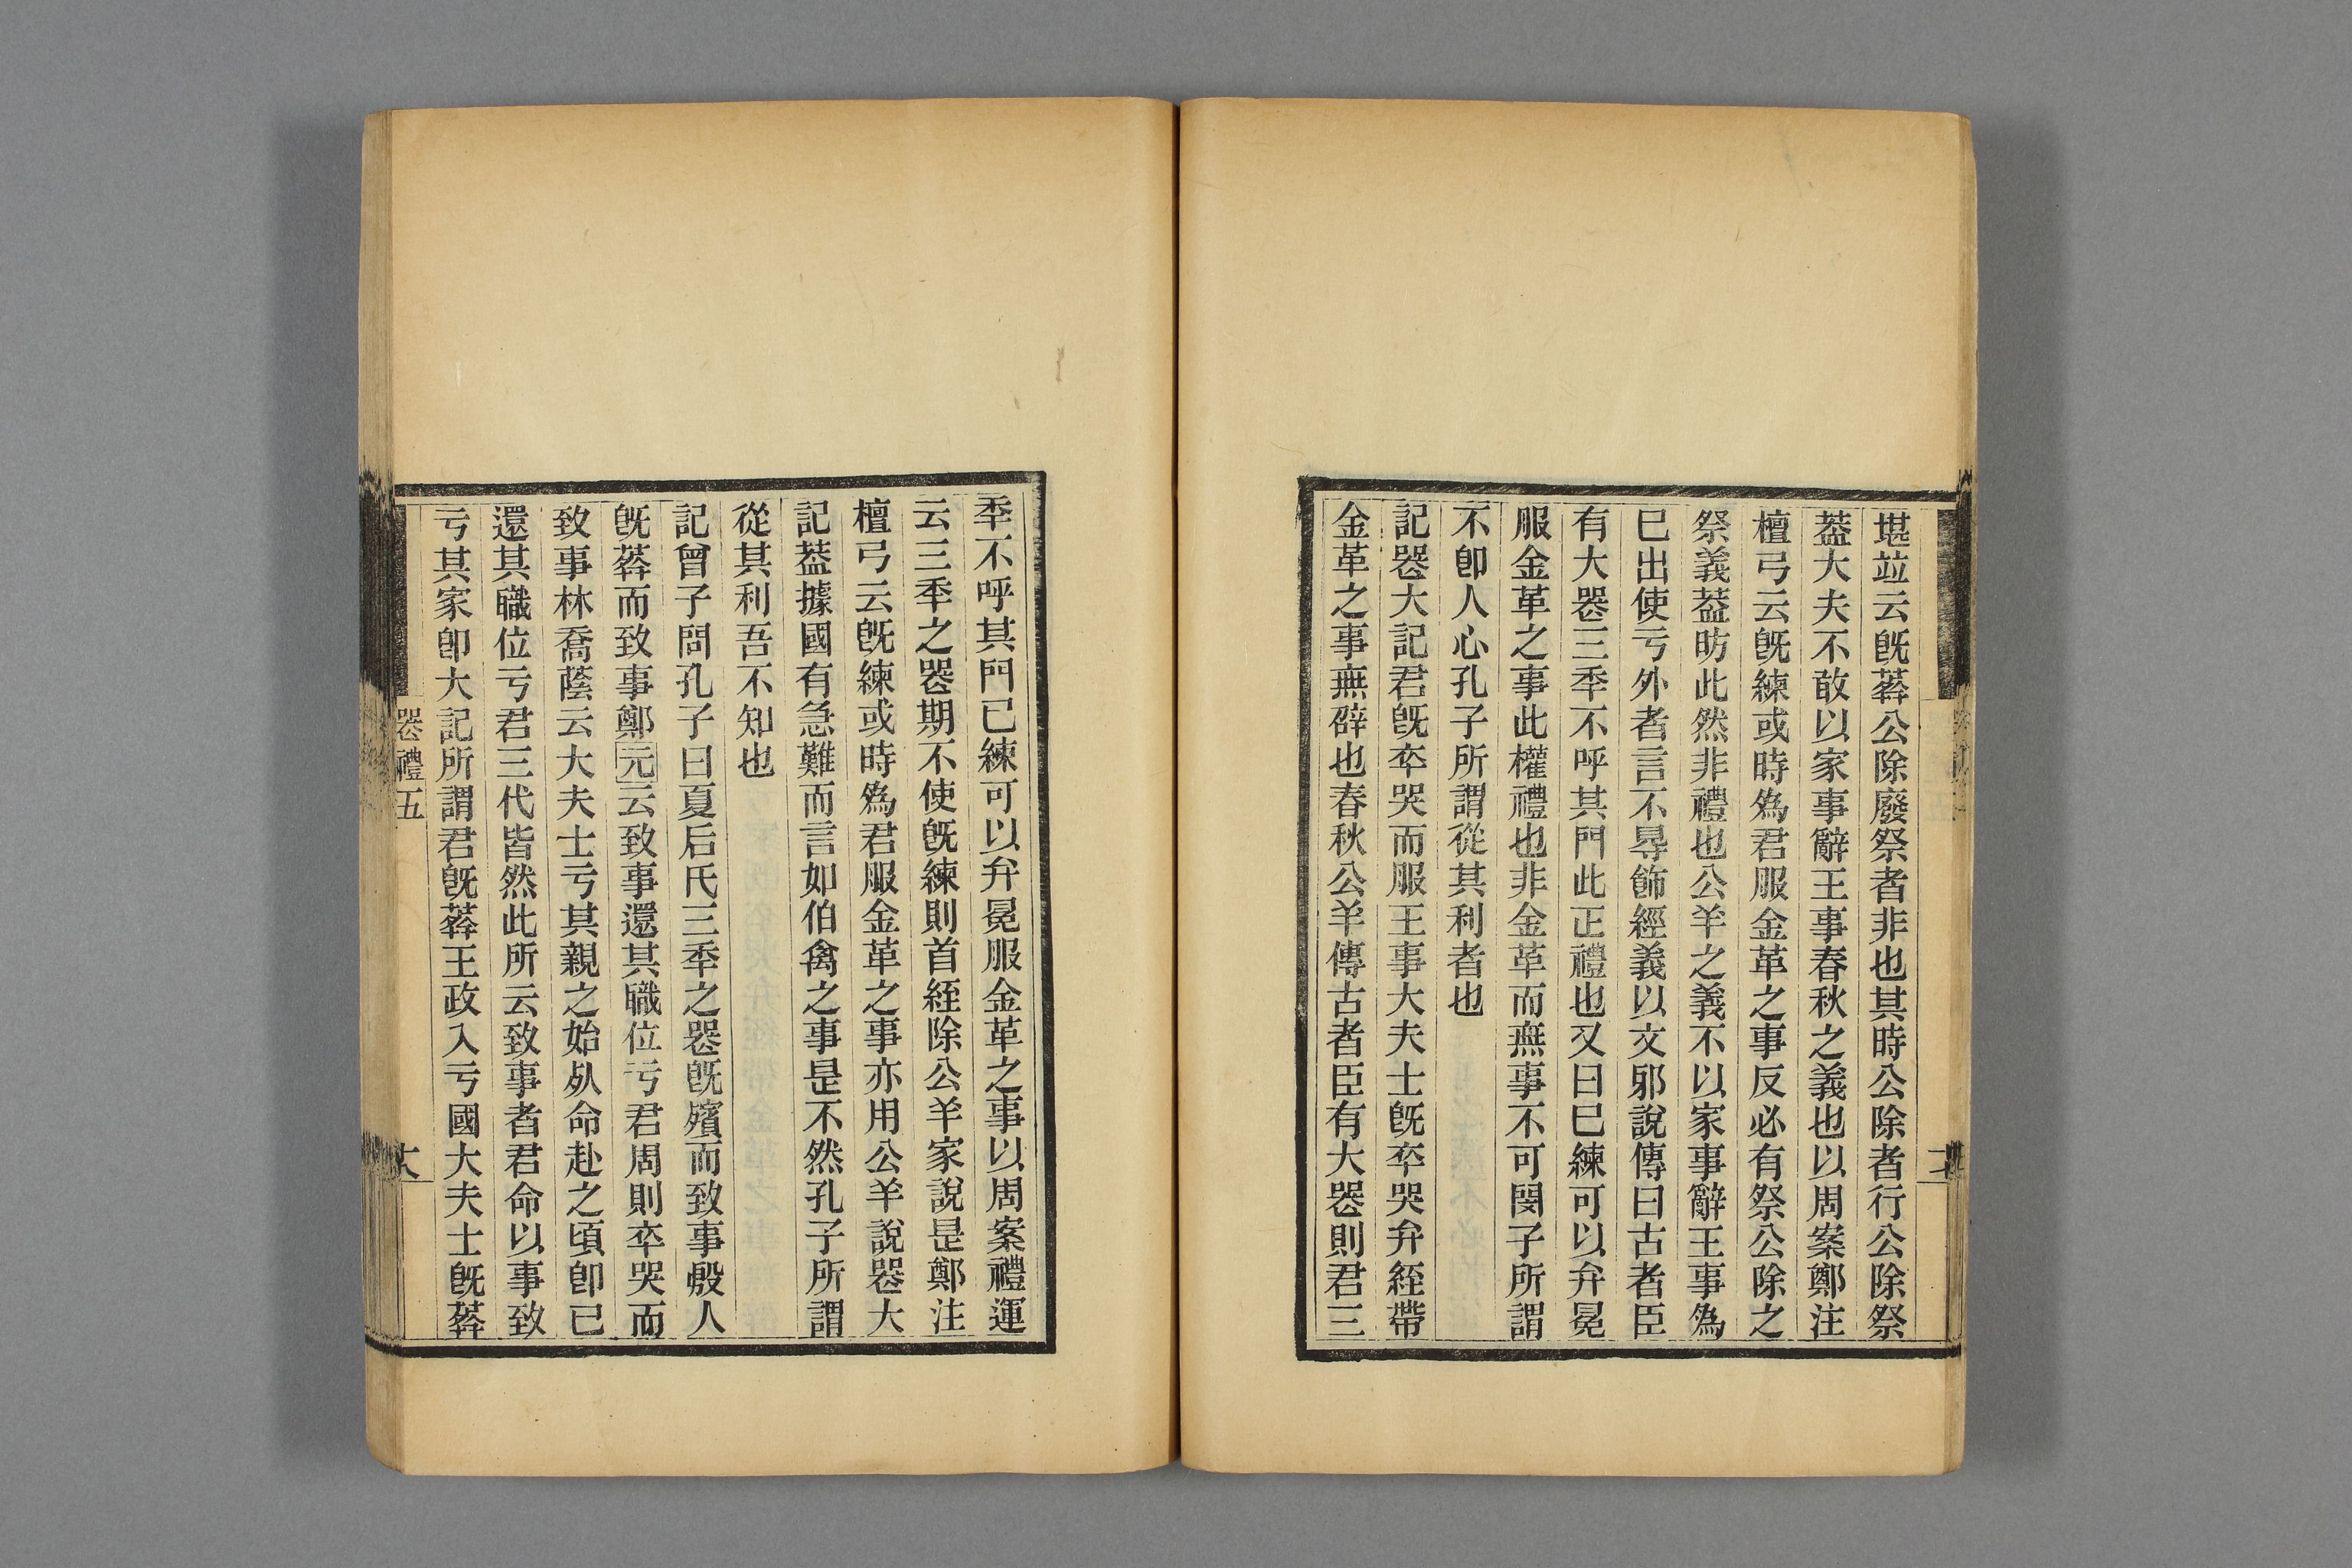 堪竝云旣葬公除廢祭者非也其時公除者行公除祭
葢大夫不敢以家事辭王事春秋之義也以周案鄭注
檀弓云旣練或時爲君服金革之事反必有祭公除之
祭義葢昉此然非禮也公羊之義不以家事辭王事爲
已出使亏外者言不㝵飾經義以文邪說傳曰古者臣
有大喪三秊不呼其門此正禮也又曰已練可以弁冕
服金革之事此權禮也非金革而無事不可閔子所謂
不卽人心孔子所謂從其利者也
記喪大記君旣卒哭而服王事大夫士旣卒哭弁絰帶
金革之事無辟也春秋公羊傳古者臣有大喪則君三
秊不呼其門已練可以弁冕服金革之事以周案禮運
云三秊之喪期不使旣練則首絰除公羊家說是鄭注
檀弓云旣練或時爲君服金革之事亦用公羊說喪大
記葢據國有急難而言如伯禽之事是不然孔子所謂
從其利吾不知也
記曾子問孔子曰夏后氏三秊之喪旣殯而致事殷人
旣葬而致事鄭元云致事還其職位亏君周則卒哭而
致事林喬蔭云大夫士亏其親之始𣦸命赴之頃卽已
還其職位亏君三代皆然此所云致事者君命以事致
亏其家卽大記所謂君旣葬王政入亏國大夫士旣葬
喪禮五